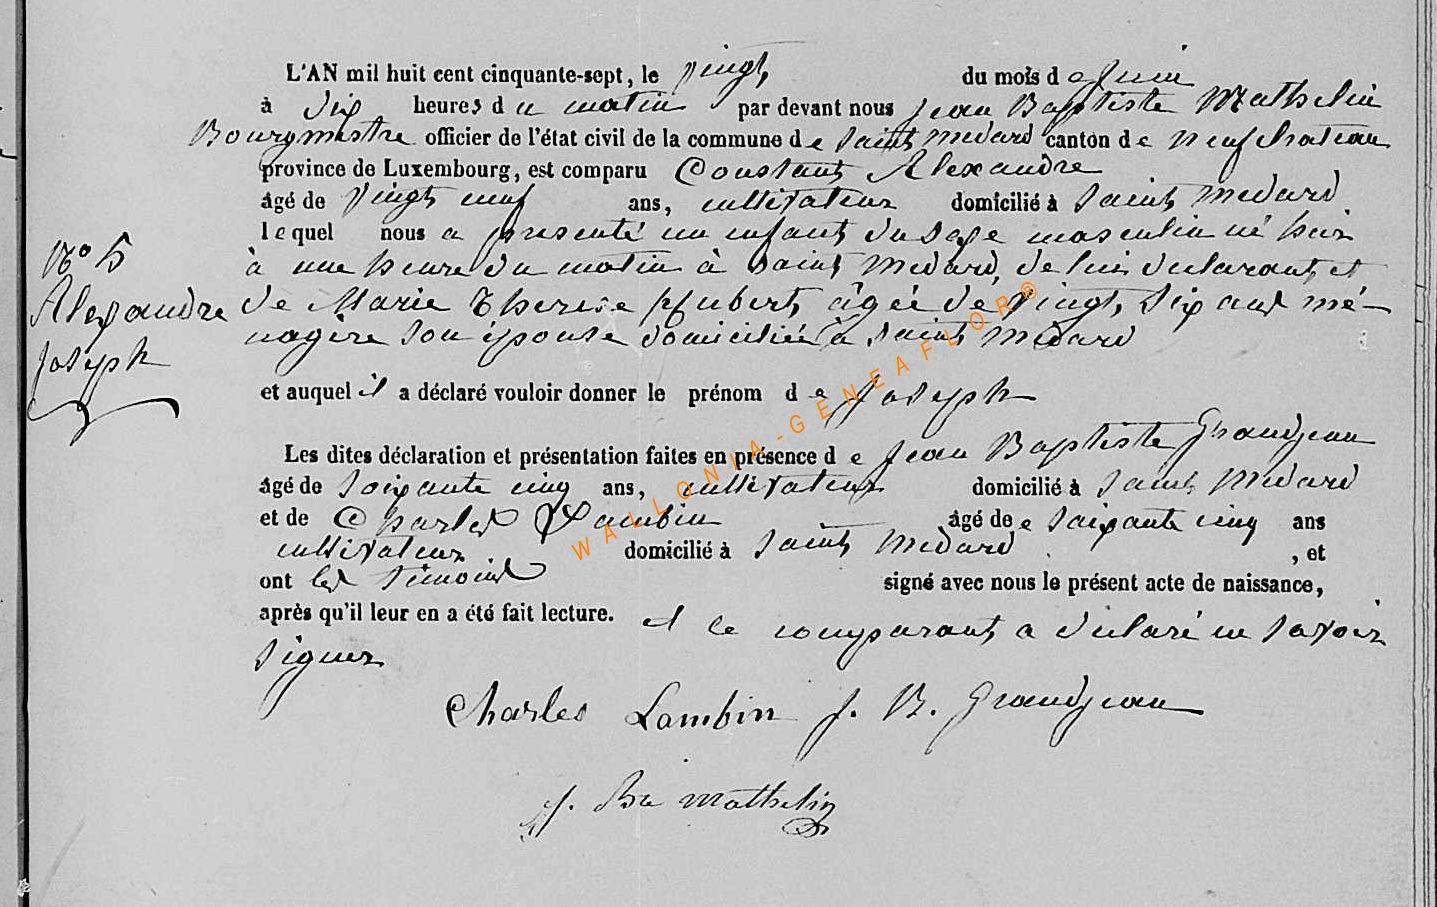 L'AN mil huit cent cinquante-sept, le vingt du mois de Juin
à Dix heures du matin par devant nous Jean Baptiste Mathelin
Bourgmestre officier de l'état civil de la commune de Saint Médard canton de neufchateau
province de Luxembourg, est comparu Constant Alexandre
âgé de vingt neuf ans, cultivateur domicilié à Saint Médard
lequel nous a presenté un enfant du sexe masculin né hier
à une heure du matin à Saint Médard, de lui déclarant et
de Marie Therese Hubert, âgée de vingt, six ans mé-
nagère son épouse domiciliée à Saint Médard
N° 15
Alexandre
Joseph
et auquel il a déclaré vouloir donner le prénom de Joseph
Les dites déclaration et présentation faites en présence de Jean Baptiste Grandjean
âgé de Soixante cinq ans, cultivateur domicilié à Saint Médard
et de Charles Lambin âgé de Soixante cinq ans
cultivateur domicilié à Saint Médard , et
ont les témoins signé avec nous le présent acte de naissance,
après qu'il leur en a été fait lecture. et le comparant a déclaré ne savoir
signer
Charles Lambin J. B. Grandjean
J. Bte Mathelin
WALLONIA-GENEAFLOR®